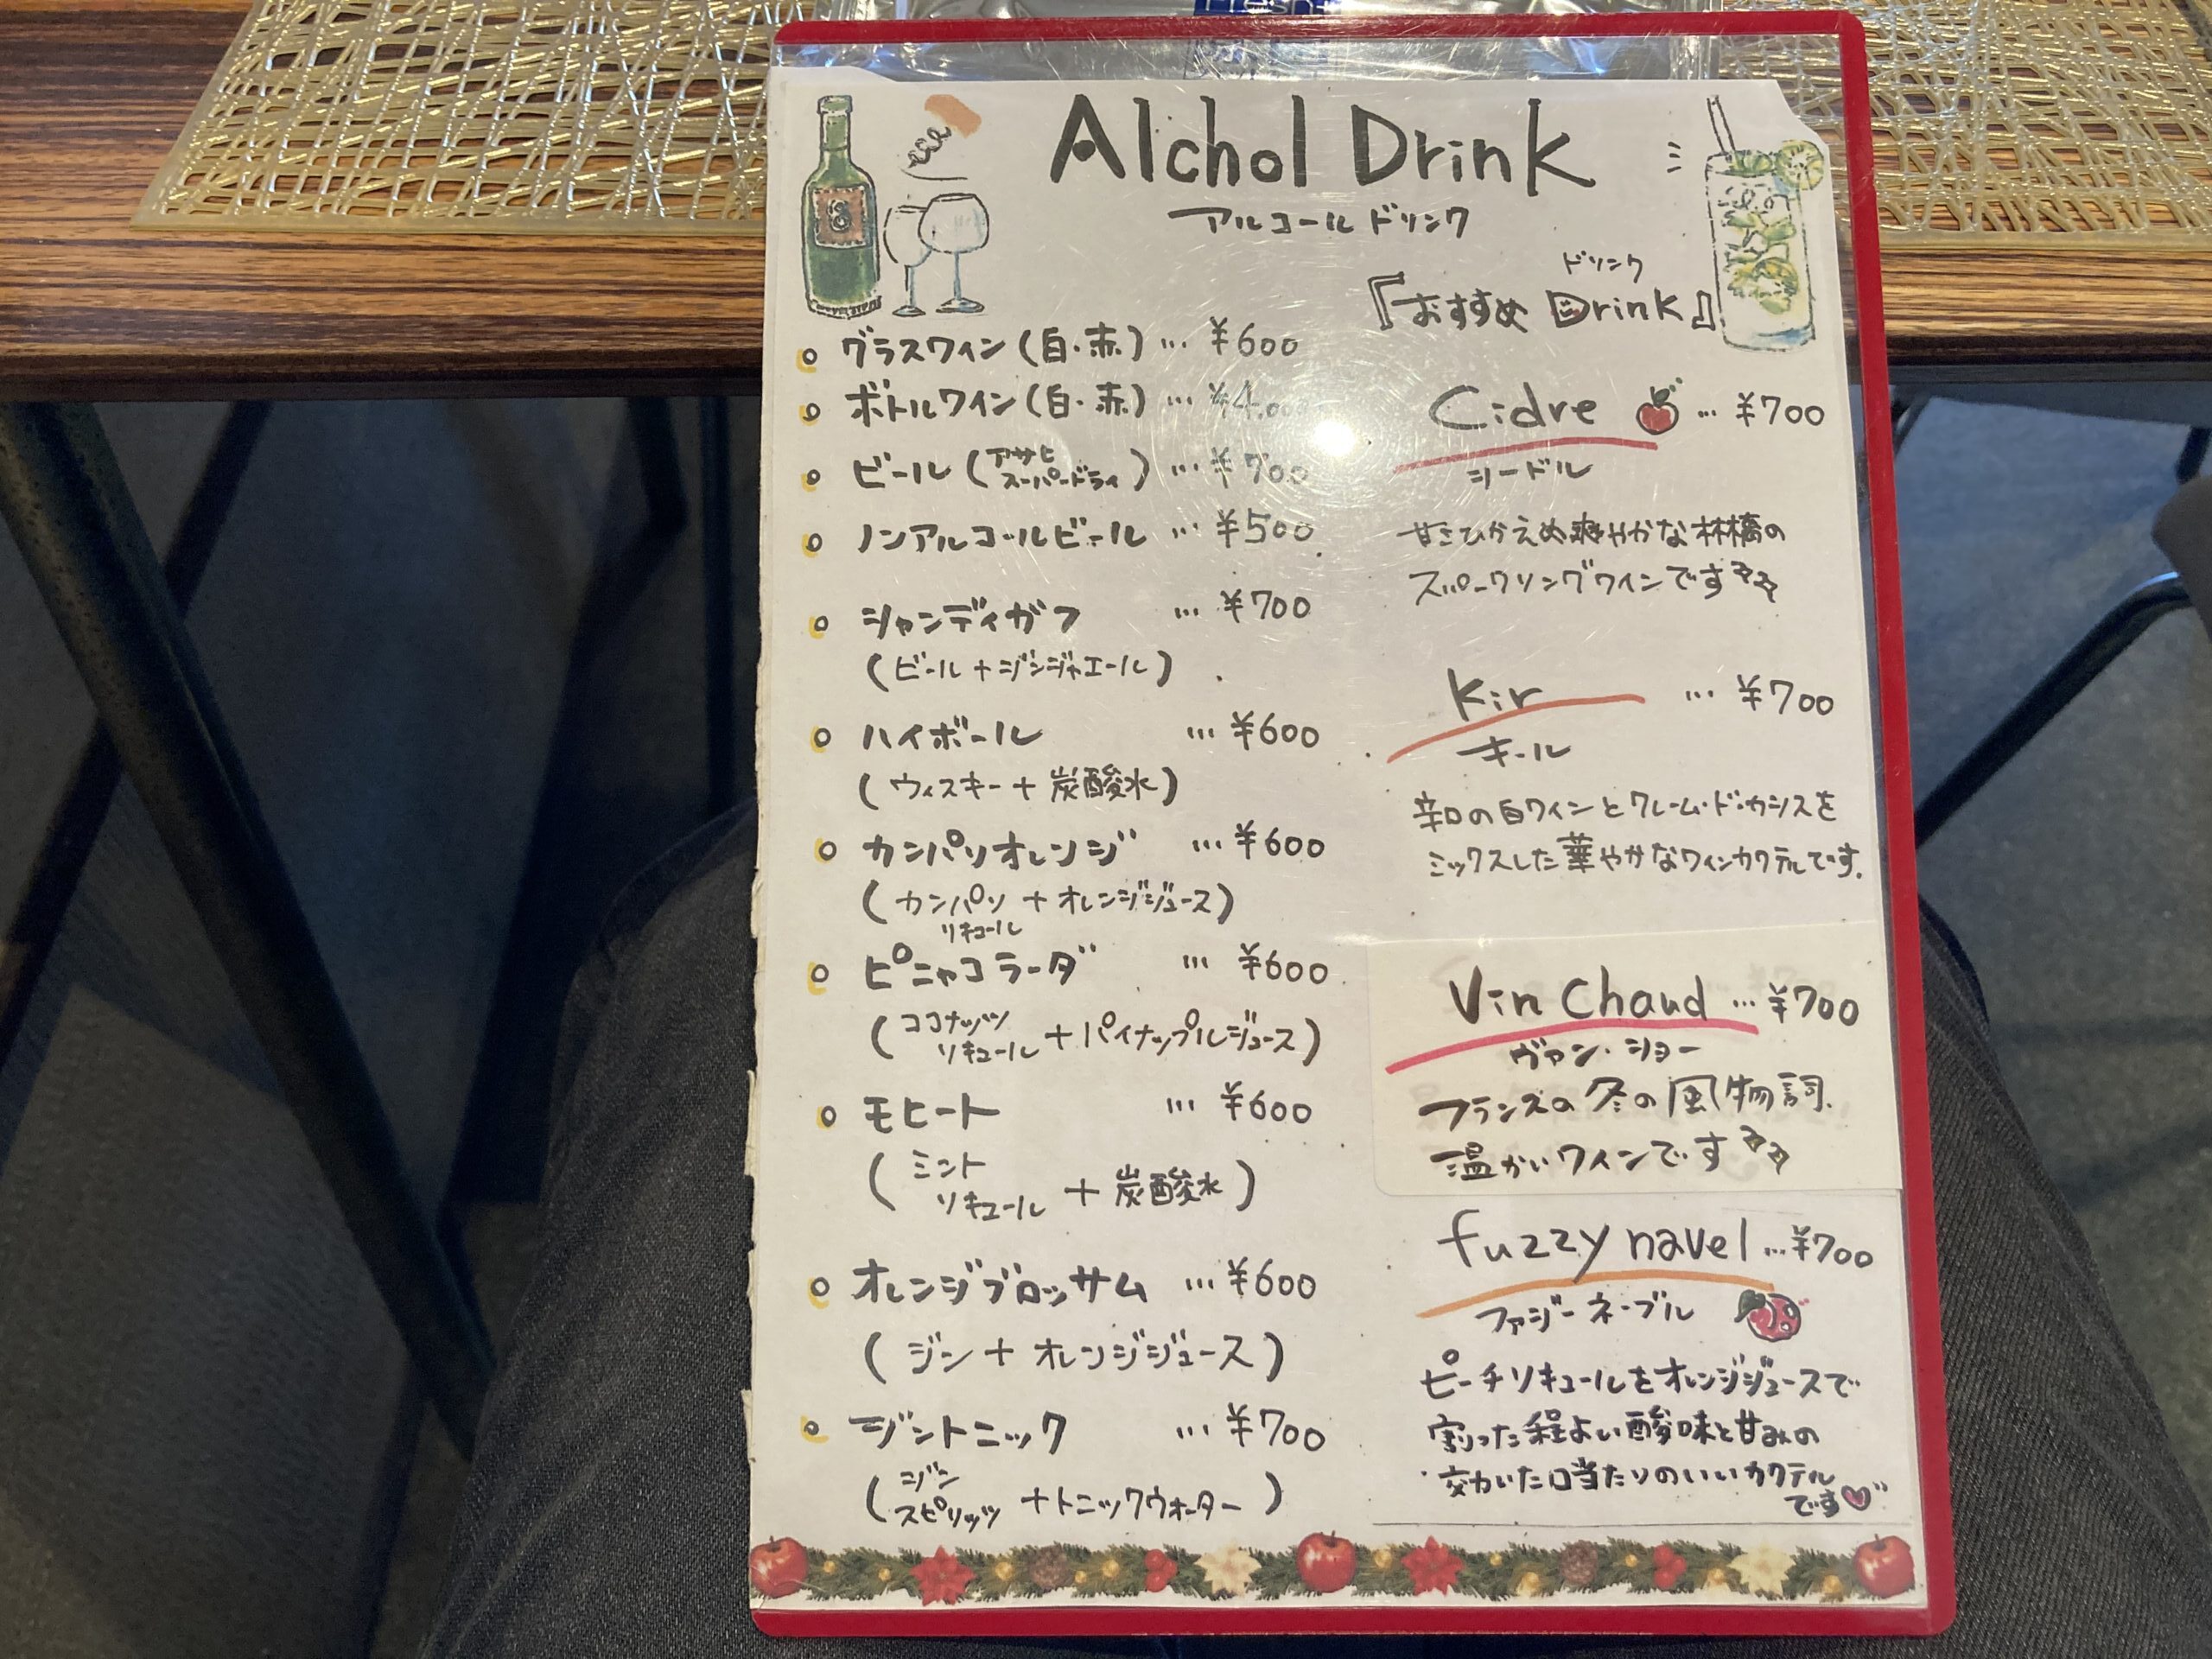 Fresh
Alchol Drink
アルコールドリンク
ドリンク
『おすすめ Drink』
グラスワイン(白・赤)…¥600
ボトルワイン(白・赤)…¥4,000
ビール(アサヒ
スーパードライ)…¥700
ノンアルコールビール…¥500
シャンディガフ …¥700
(ビール+ジンジャエール)
ハイボール …¥600
(ウィスキー+炭酸水)
カンパリオレンジ …¥600
(カンパリ
リキュール+オレンジジュース)
ピニャコラーダ …¥600
(ココナッツ
リキュール+パイナップルジュース)
モヒート …¥600
(ミント
リキュール+炭酸水)
オレンジブロッサム …¥600
(ジン+オレンジジュース)
ジントニック …¥700
(ジン
スピリッツ+トニックウォーター)
Cidre …¥700
シードル
甘さひかえめ爽やかな林檎の
スパークリングワインです
Kir …¥700
キール
辛口の白ワインとクレーム・ド・カシスを
ミックスした華やかなワインカクテルです.
Vin Chaud …¥700
ヴァン・ショー
フランスの冬の風物詩.
温かいワインです
fuzzy navel …¥700
ファジーネーブル
ピーチリキュールをオレンジジュースで
割った程よい酸味と甘みの
交わった口当たりのいいカクテル
です